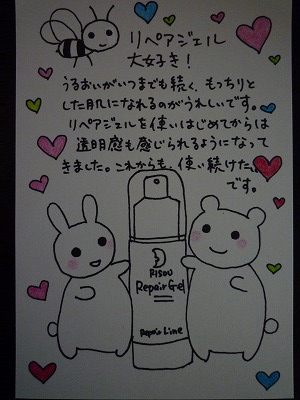 リペアジェル
大好き！
うるおいがいつまでも続く、もっちりと
した肌になれるのがうれしいです。
リペアジェルを使いはじめてからは
透明感も感じられるようになって
きました。これからも、使い続けたい
です。
RISOU
Repair Gel
Repair Line